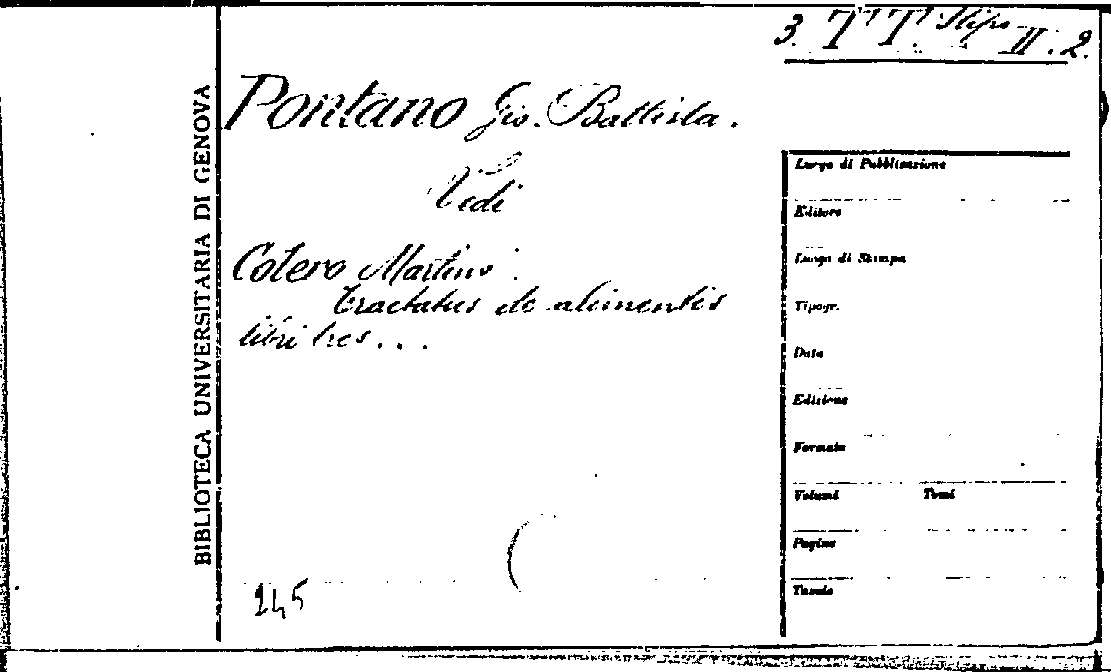 3. TT. Stipo II. 2.
Pontano Gio. Battista.
Vedi
Cotero Martino.
Tractatus de alimentis
libri tres...
245
BIBLIOTECA UNIVERSITARIA DI GENOVA
Luogo di Pubblicazione
Editore
Luogo di Stampa
Tipogr.
Data
Edizione
Formato
Volumi Tomi
Pagine
Tavole